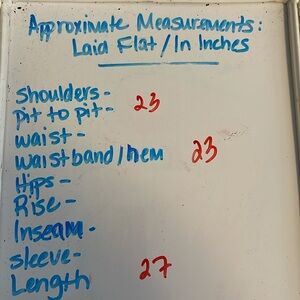 Approximate Measurements:
Laid Flat/In Inches
Shoulders-
pit to pit- 23
waist-
waistband/hem 23
Hips-
Rise-
Inseam-
sleeve-
Length 27